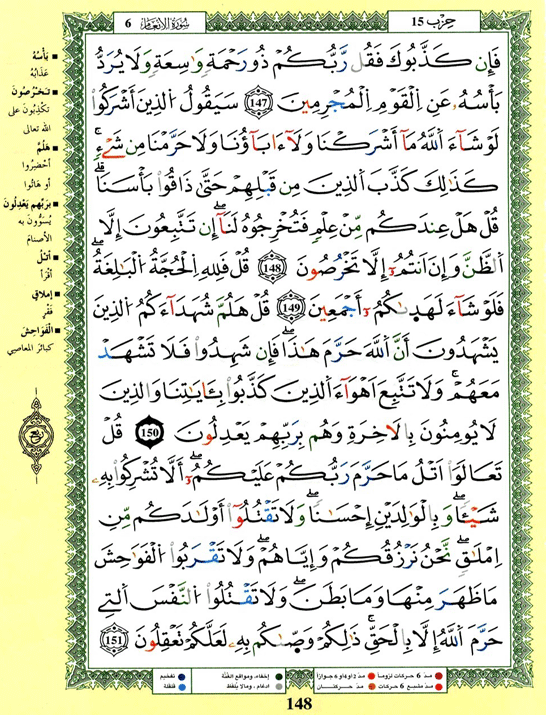 حِزْب 15
سُورَةُ الأَنْعَام 6
فَإِن كَذَّبُوكَ فَقُل رَّبُّكُمْ ذُو رَحْمَةٍ وَاسِعَةٍ وَلَا يُرَدُّ
بَأْسُهُ عَنِ الْقَوْمِ الْمُجْرِمِينَ 147 سَيَقُولُ الَّذِينَ أَشْرَكُوا
لَوْ شَاءَ اللَّهُ مَا أَشْرَكْنَا وَلَا ءَابَاؤُنَا وَلَا حَرَّمْنَا مِن شَيْءٍ
كَذَٰلِكَ كَذَّبَ الَّذِينَ مِن قَبْلِهِمْ حَتَّىٰ ذَاقُوا بَأْسَنَا
قُلْ هَلْ عِندَكُم مِّنْ عِلْمٍ فَتُخْرِجُوهُ لَنَا إِن تَتَّبِعُونَ إِلَّا
الظَّنَّ وَإِنْ أَنتُمْ إِلَّا تَخْرُصُونَ 148 قُلْ فَلِلَّهِ الْحُجَّةُ الْبَالِغَةُ
فَلَوْ شَاءَ لَهَدَىٰكُمْ أَجْمَعِينَ 149 قُلْ هَلُمَّ شُهَدَاءَكُمُ الَّذِينَ
يَشْهَدُونَ أَنَّ اللَّهَ حَرَّمَ هَٰذَا فَإِن شَهِدُوا فَلَا تَشْهَدْ
مَعَهُمْ وَلَا تَتَّبِعْ أَهْوَاءَ الَّذِينَ كَذَّبُوا بِـَٔايَٰتِنَا وَالَّذِينَ
لَا يُومِنُونَ بِالْآخِرَةِ وَهُم بِرَبِّهِمْ يَعْدِلُونَ 150 قُلْ
تَعَالَوَا اتْلُ مَا حَرَّمَ رَبُّكُمْ عَلَيْكُمْ أَلَّا تُشْرِكُوا بِهِ
شَيْـًٔا وَبِالْوَالِدَيْنِ إِحْسَٰنًا وَلَا تَقْتُلُوا أَوْلَٰدَكُم مِّنِ
إِمْلَٰقٍ نَّحْنُ نَرْزُقُكُمْ وَإِيَّاهُمْ وَلَا تَقْرَبُوا الْفَوَاحِشَ
مَا ظَهَرَ مِنْهَا وَمَا بَطَنَ وَلَا تَقْتُلُوا النَّفْسَ الَّتِي
حَرَّمَ اللَّهُ إِلَّا بِالْحَقِّ ذَٰلِكُمْ وَصَّىٰكُم بِهِ لَعَلَّكُمْ تَعْقِلُونَ 151
بَأْسُهُ
عَذَابُهُ
تَخْرُصُونَ
تَكْذِبُونَ على
الله تعالى
هَلُمَّ
أَحْضِرُوا
أو هَاتُوا
بِرَبِّهِم يَعْدِلُونَ
يُسَوُّونَ به
الأصنامَ
أَتْلُ
أَقْرَأُ
إِمْلَاقٍ
فَقْرٍ
الْفَوَاحِشَ
كبائرَ المعاصي
ربع
مد 6 حركات لزوماً
مد 2 أو 4 أو 6 جوازاً
إخفاء، ومواقع الغنّة
تفخيم
مد مشبع 6 حركات
مد حركتان
ادغام، وما لا يلفظ
قلقلة
148